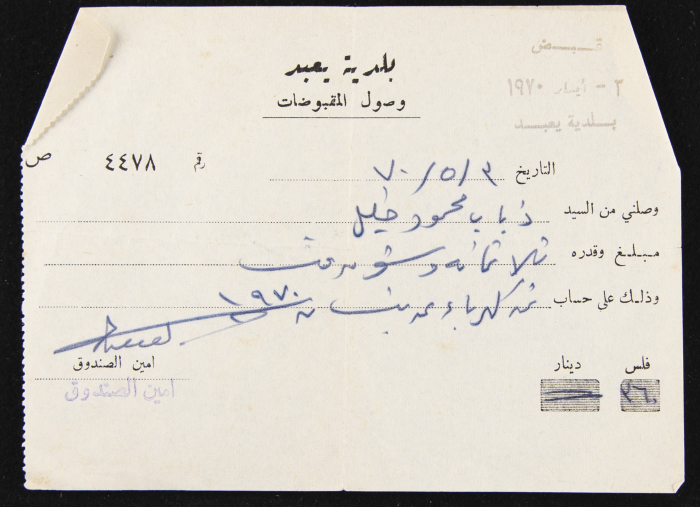 بلدية يعبد
وصول المقبوضات
قبض
٣ - أيار ١٩٧٠
بلدية يعبد
رقم ٤٤٧٨
ص
التاريخ ٧٠/٥/٣
وصلني من السيد ذياب محمود خليل
مبلغ وقدره ثلاثمائه وستون فلس
وذلك على حساب ثمن كهرباء عن نيسان سنة ١٩٧٠
امين الصندوق
امين الصندوق
فلس دينار
٣٦٠